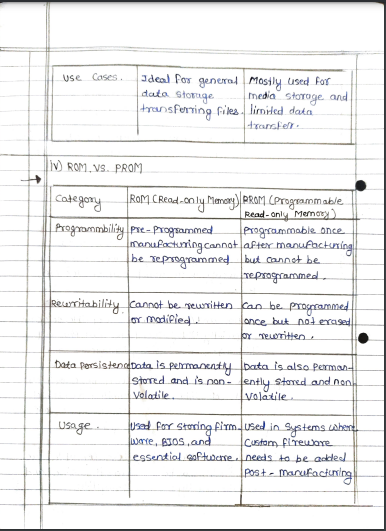 Use Cases.
Ideal for general
data storage
transferring files.
Mostly used for
media storage and
limited data
transfer.
iv) ROM. VS. PROM
Category
ROM (Read-only Memory)
PROM (Programmable
Read-only Memory)
Programmbility
Pre-Programmed
manufacturing cannot
be reprogrammed
Programmable once
after manufacturing
but cannot be
reprogrammed.
Rewritability
Cannot be rewritten
or modified.
Can be programmed
once but not erased
or rewritten.
Data persistence
Data is permanently
stored and is non-
Volatile.
Data is also perman-
ently stored and non
Volatile.
Usage.
Used for storing firm
ware, BIOS, and
essential software.
Used in Systems where
Custom fireware
needs to be added
Post-manufacturing